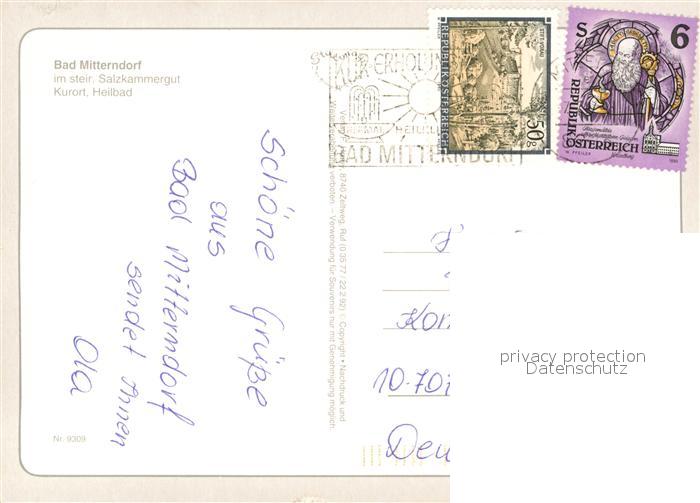 Bad Mitterndorf
im steir. Salzkammergut
Kurort, Heilbad
KUR ERHOLU
THERMAL HEILKLI
BAD MITTERNDORF
STIFT VORAU
REPUBLIK ÖSTERREICH
50g
S 6
REPUBLIK
ÖSTERREICH
W. PFEILER
1993
Schöne Grüße
aus
Bad Mitterndorf
sendet Ihnen
Ola
8740 Zeltweg, Ruf (0 35 77 / 22 2 92) © Copyright • Nachdruck und
verboten. – Verwendung für Souvenirs nur mit Genehmigung möglich.
Kon
10-701
Deu
privacy protection
Datenschutz
Nr. 9309